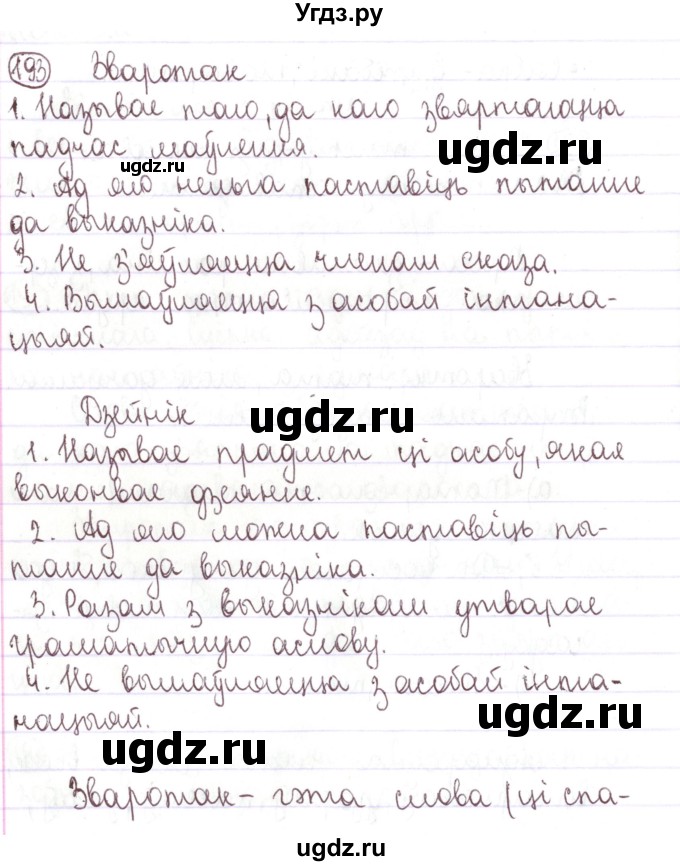 Угдз.ру
193 Зваротак
1. Называе таго, да каго звяртаюцца
падчас маўлення.
ugdz.ru
ugdz.ru
2. Ад яго нельга паставіць пытанне
да выказніка.
3. Не з'яўляецца членам сказа.
ugdz.ru
4. Вымаўляецца з асобай інтана-
цыяй.
Дзейнік
ugdz.ru
1. Называе прадмет ці асобу, якая
выконвае дзеянне.
ugdz.ru
2. Ад яго можна паставіць пы-
танне да выказніка.
ugdz.ru
3. Разам з выказнікам утварае
граматычную аснову.
4. Не вымаўляецца з асобай інта-
нацыяй.
ugdz.ru
ugdz.ru
Зваротак – гэта слова (ці спа-
ugdz.ru